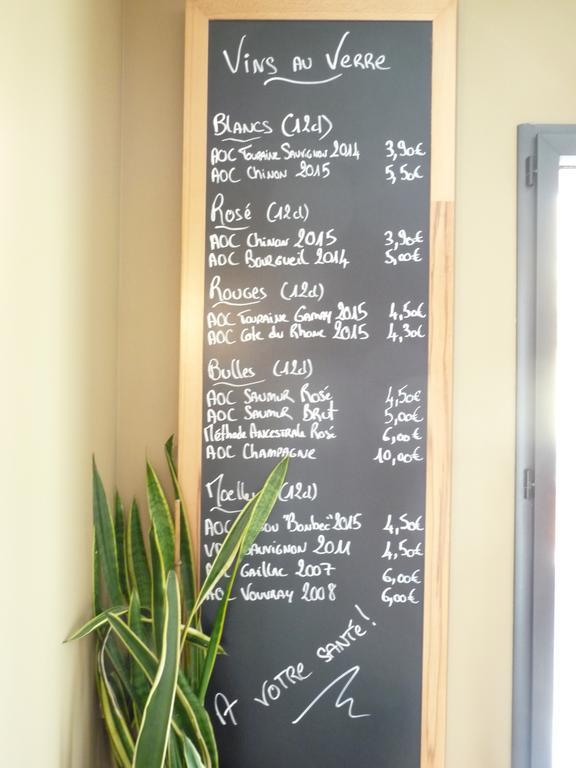 Vins au Verre
Blancs (12cl)
AOC Touraine Sauvignon 2014 3,90€
AOC Chinon 2015 5,50€
Rosé (12cl)
AOC Chinon 2015 3,90€
AOC Bourgueil 2014 5,00€
Rouges (12cl)
AOC Touraine Gamay 2015 4,50€
AOC Cote du Rhone 2015 4,30€
Bulles (12cl)
AOC Saumur Rosé 4,50€
AOC Saumur Brut 5,00€
Méthode Ancestrale Rosé 6,00€
AOC Champagne 10,00€
(12cl)
AOC "Bonbec" 2015 4,50€
Sauvignon 2011 4,50€
Gaillac 2007 6,00€
AOC Vouvray 2008 6,00€
A votre santé!